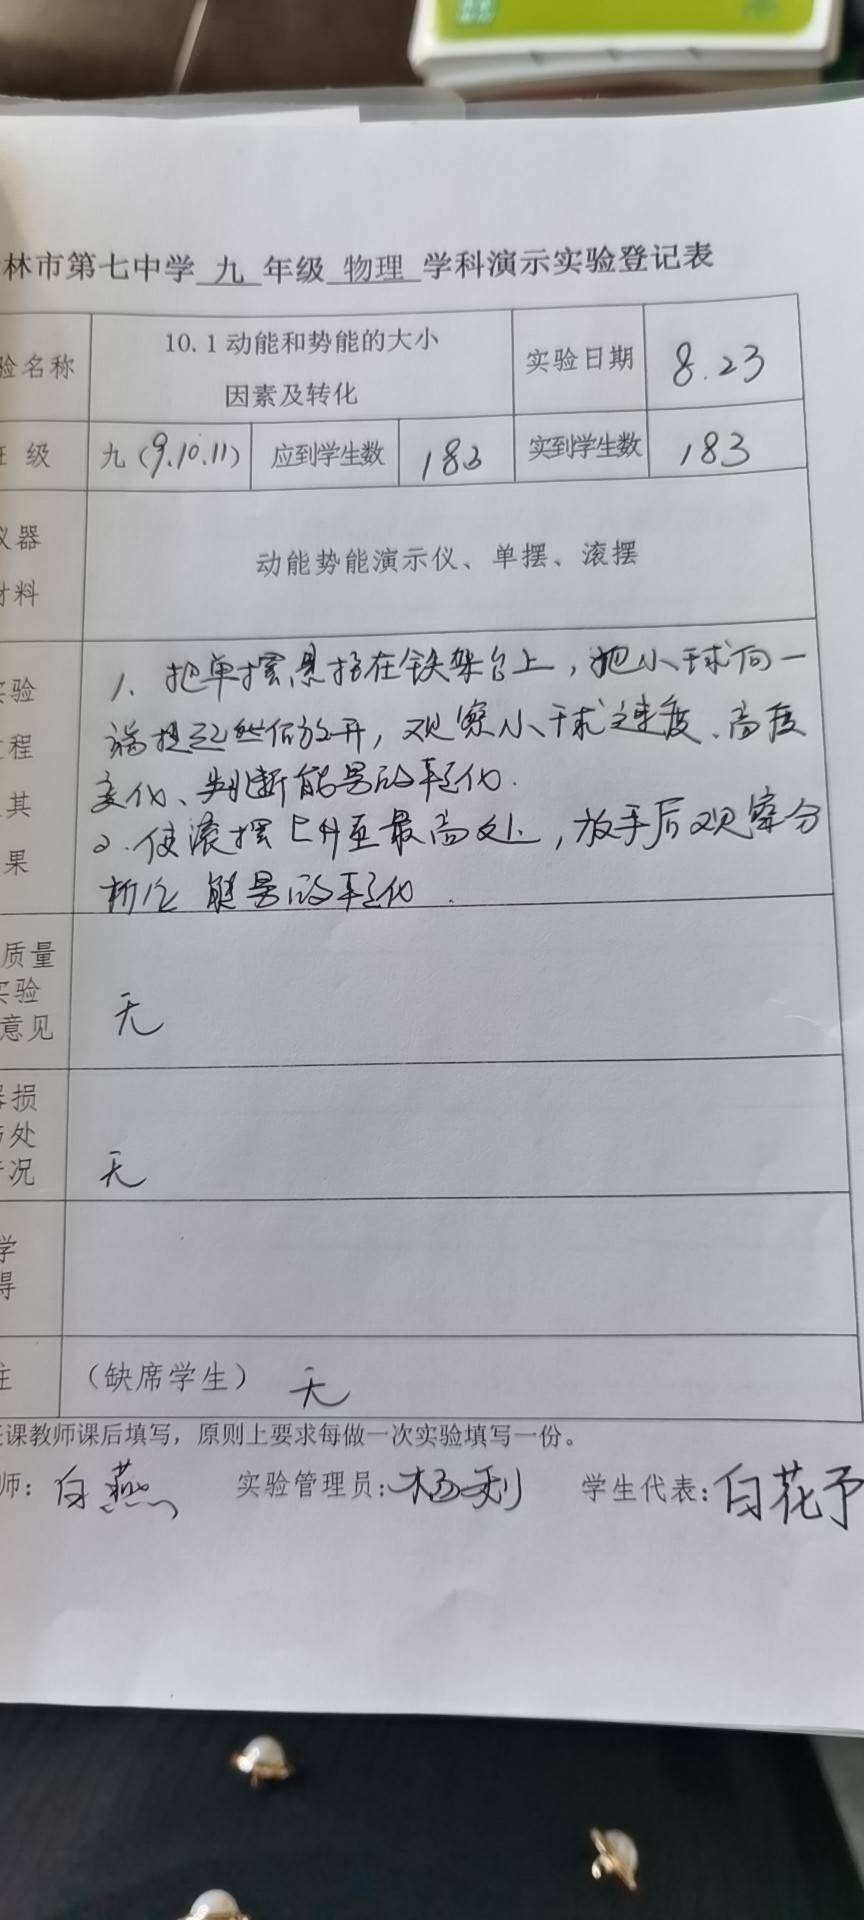 林市第七中学 九 年级 物理 学科演示实验登记表
验名称 10.1动能和势能的大小 实验日期 8.23
因素及转化
级 九(9.10.11) 应到学生数 183 实到学生数 183
仪器
材料
动能势能演示仪、单摆、滚摆
实验 1、把单摆悬挂在铁架台上，把小球向一
程 端提起然后放开，观察小球速度、高度
其 变化、判断能量的转化.
果 2.使滚摆上升至最高处，放手后观察分
析 能量的转化.
质量
实验
意见
无
损
处
况
无
学
得
注 (缺席学生) 无
课教师课后填写，原则上要求每做一次实验填写一份。
师: 白燕 实验管理员: 杨利 学生代表: 白花予